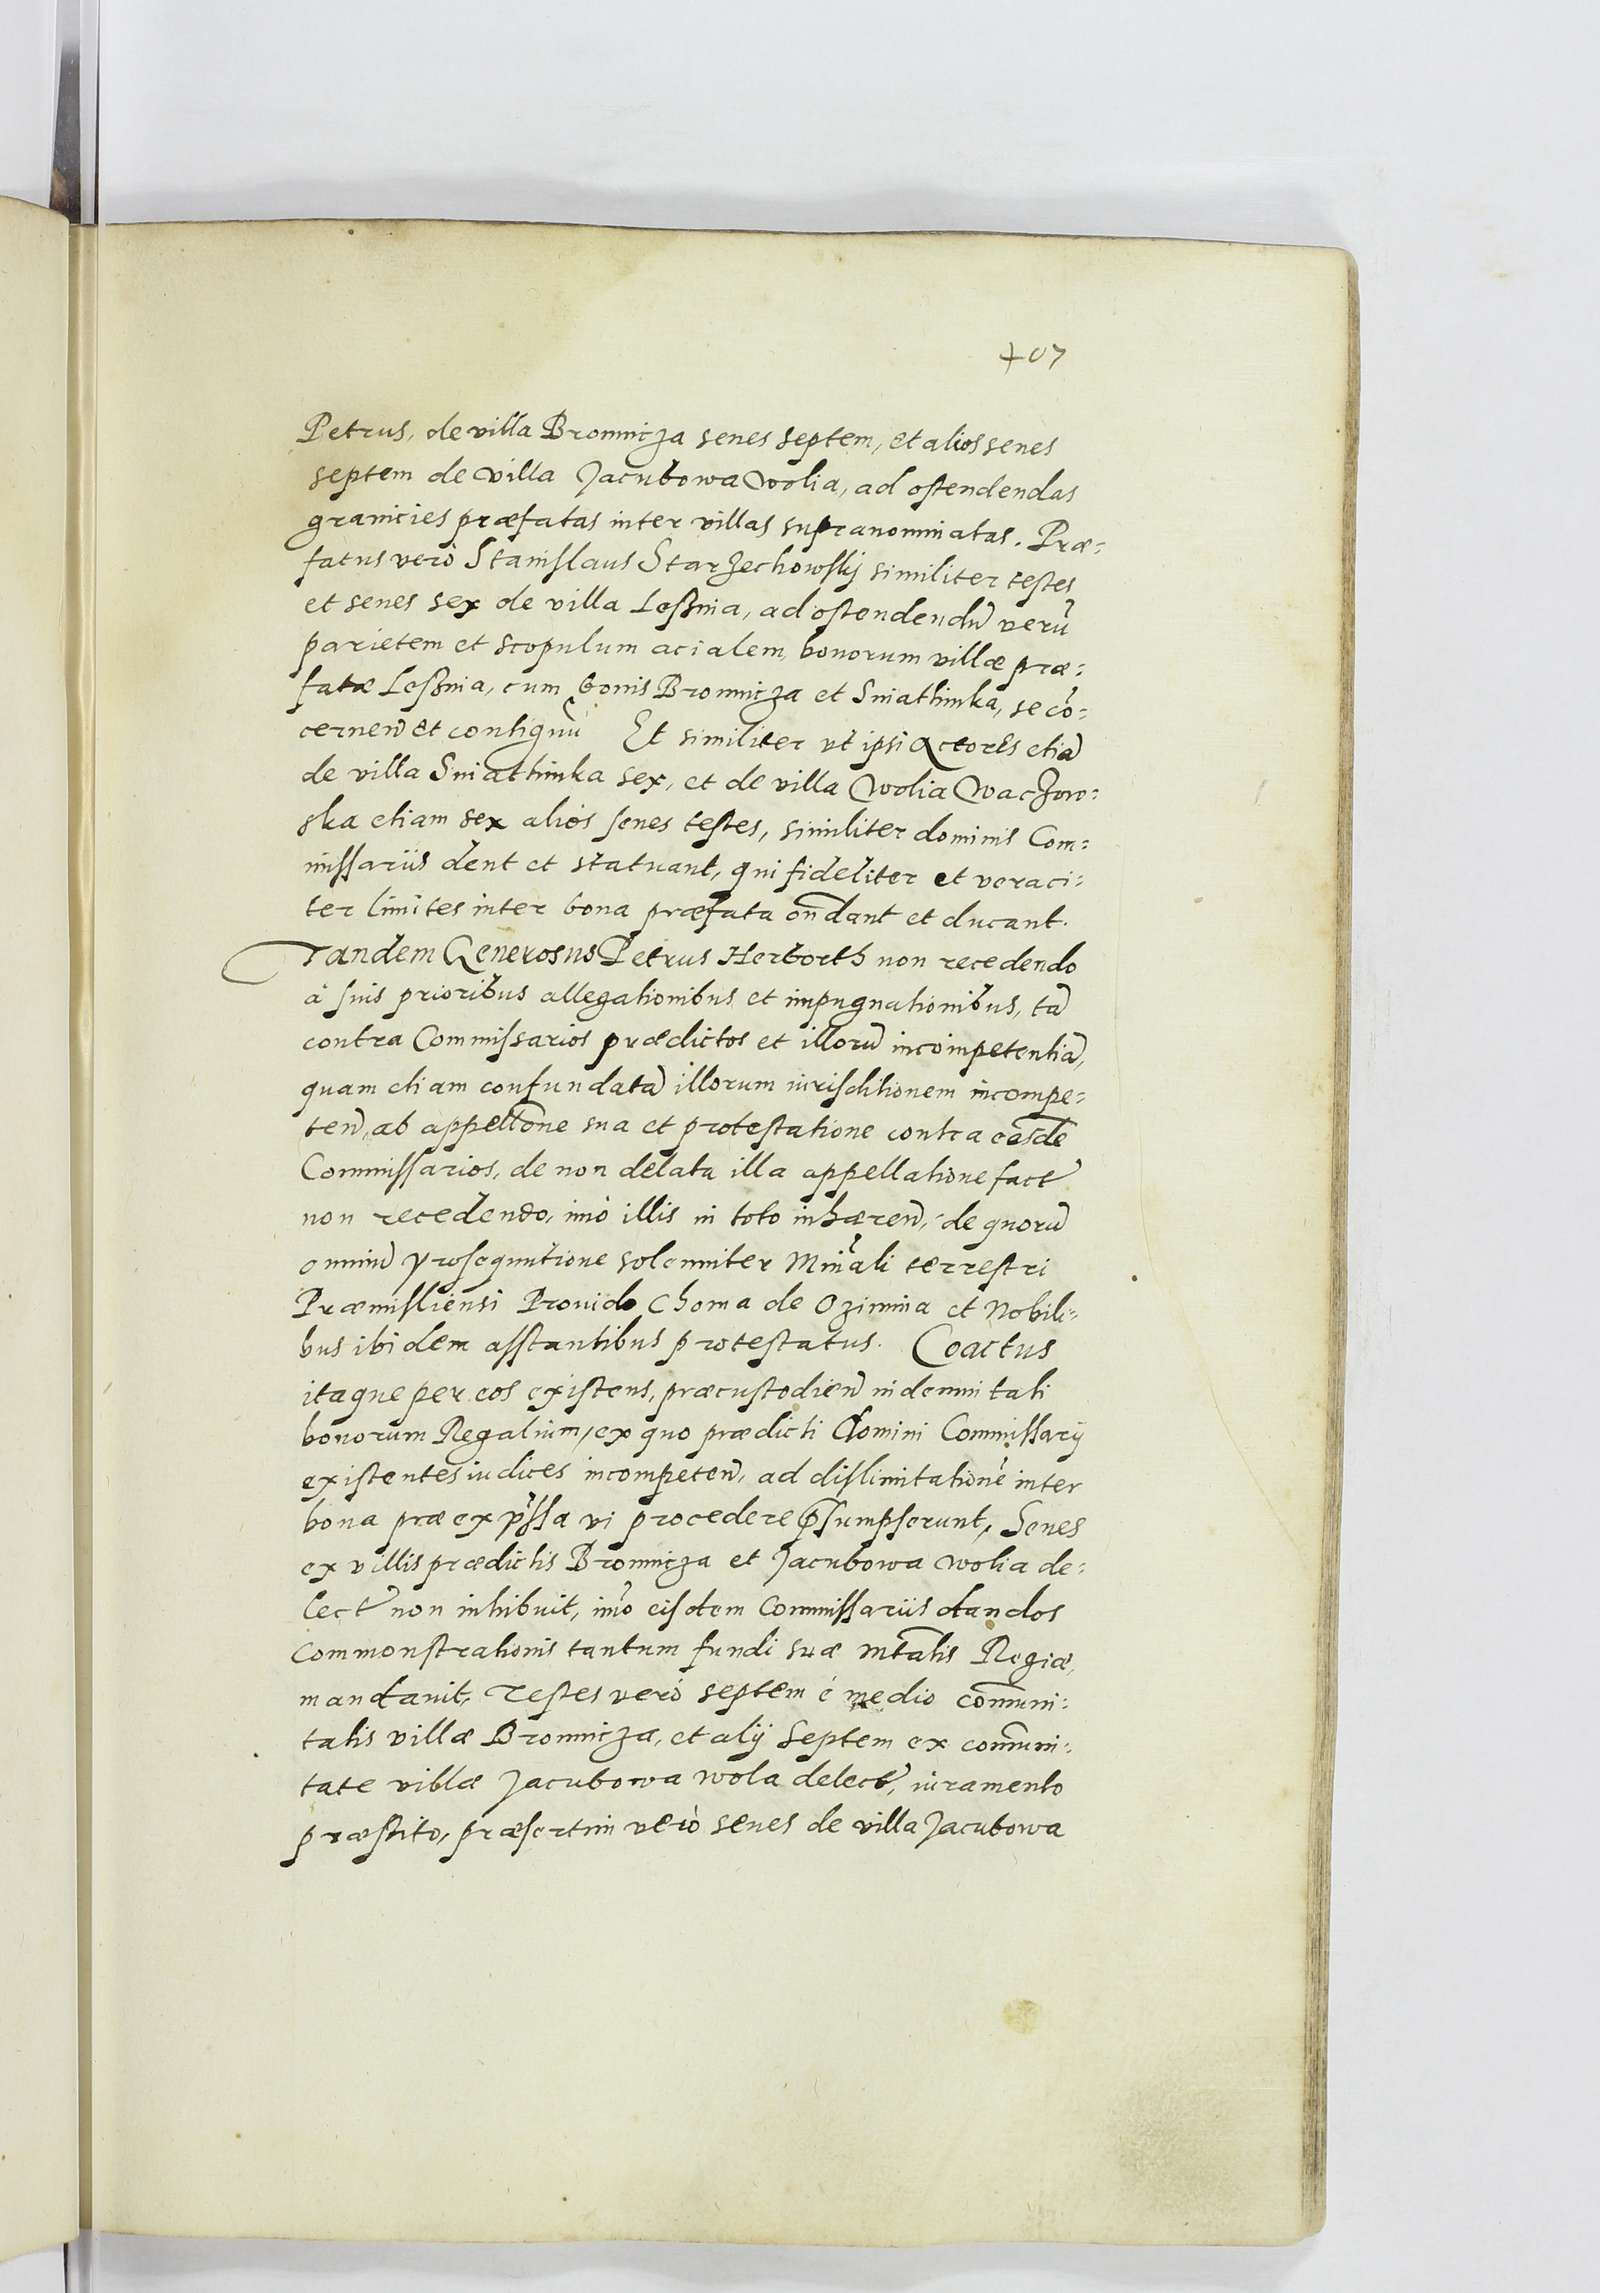 407
Petrus, de villa Bronnicza senes septem, et alios senes
septem de villa Jacubowa Wolia, ad ostendendas
granicies præfatas inter villas supranominatas. Præ:
fatus verò Stanislaus Starzechowskij similiter testes
et senes sex de villa Leßnia, ad ostendendū verū
parietem et scopulum acialem, bonorum villæ præ:
fatæ Leßnia, cum bonis Bronnicza et Sniathinka, se cō:
cernen̄ et contiguū Et similiter vt ipsi Actores etiā
de villa Sniathinka sex, et de villa Wolia Waczow:
ska etiam sex alios senes testes, similiter dominis Com:
missariis dent et statuant, qui fideliter et veraci:
ter limites inter bona præfata ondant et ducant.
Tandem Generosus Petrus Herborth non recedendo
à suis prioribus allegationibus et impugnationibus, tā
contra Commissarios prædictos et illorū incompetentiā,
quam etiam confundatā illorum iurisditionem incompe:
ten̄, ab appellōne sua et protestatione contra eosdē
Commissarios, de non delata illa appellatione fact̄
non recedendo, imò illis in toto inhæren̄, de quorū
omniū prosequutione solenniter Minr̄ali terrestri
Præmisliensi Prouido Choma de Ozimina et Nobili:
bus ibidem asstantibus protestatus. Coactus
itaque per eos existens, præcustodien̄ indemnitati
bonorum Regalium, ex quo prædicti domini Commissarij
existentes iudices incompeten̄, ad dislimitationē inter
bona præexpr̄ssa vi procedere p̄sumpserunt, Senes
ex villis prædictis Bronnicza et Jacubowa Wolia de:
lect̄ non inhibuit, imò eisdem Commissariis dandos
commonstrationis tantum fundi suæ Mtatis Regiæ,
mandauit, Testes verò septem è medio com̄uni:
tatis villæ Bronnicza, et alij septem ex com̄uni:
tate villæ Jacubowa wola delect̄, iuramento
præstito, præsertim verò senes de villa Jacubowa